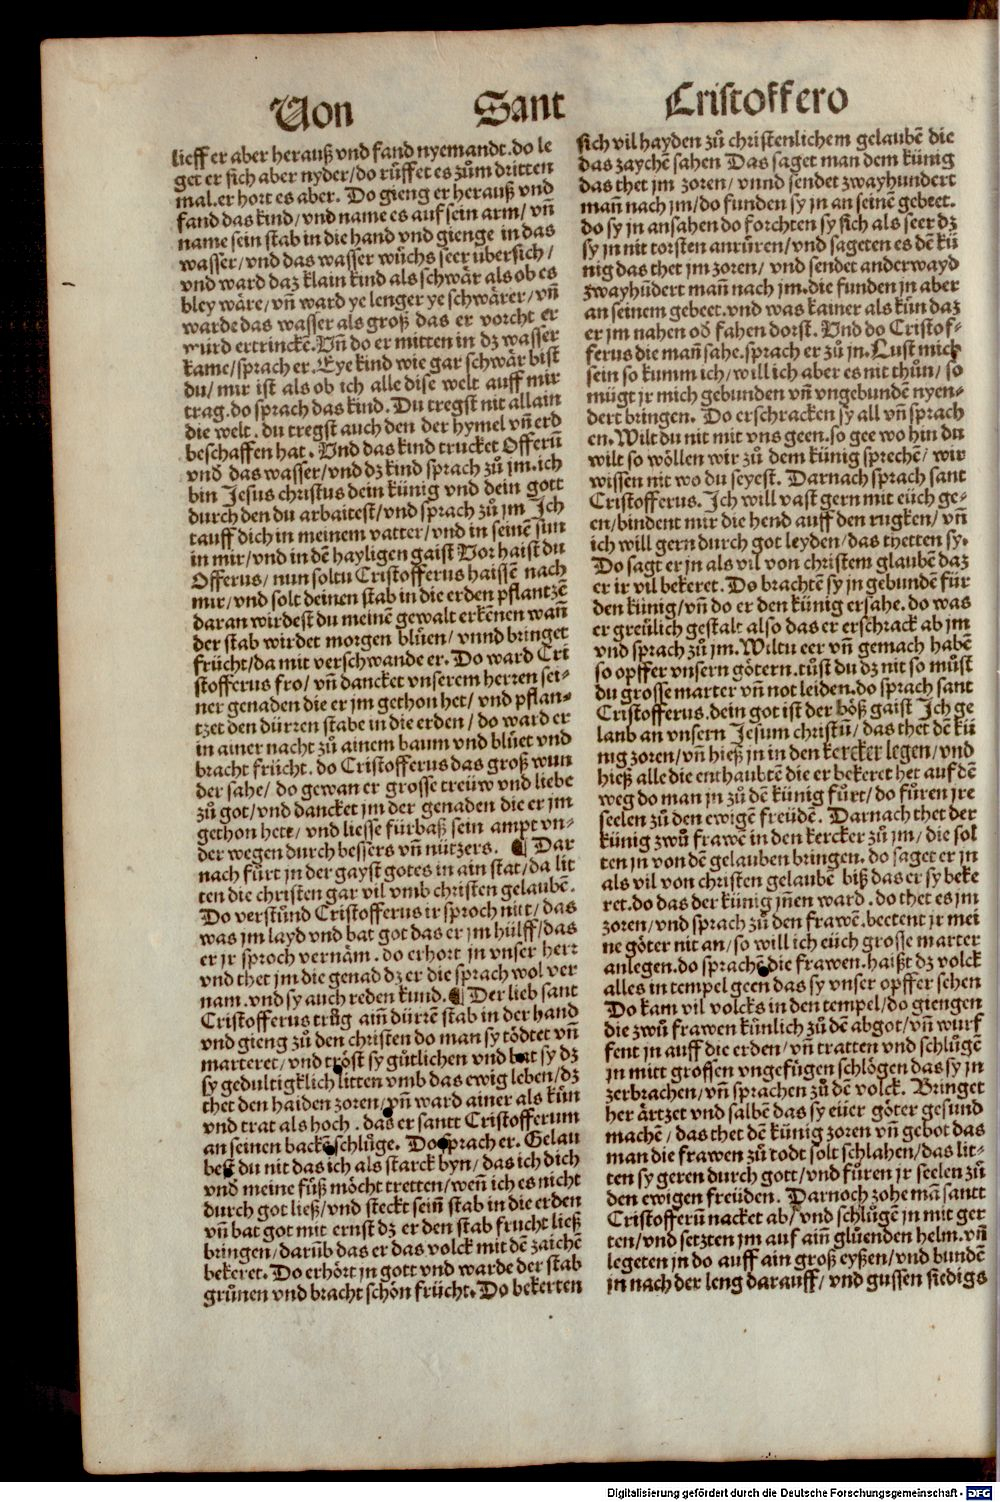 Von Sant Cristoffero
lieff er aber herauß vnd fand nyemandt. do le
get er sich aber nyder/ do růffet es zům dritten
mal. er hort es aber. Do gieng er herauß vnd
fand das kind/ vnd name es auf sein arm/ vn̄
name sein stab in die hand vnd gienge in das
wasser/ vnd das wasser wůchs seer übersich/
vnd ward daz klain kind als schwär als ob es
bley wäre/ vn̄ ward ye lenger ye schwärer/ vn̄
warde das wasser als groß das er vorcht er
wurd ertrinckē. Vn̄ do er mitten in dz wasser
kame/ sprach er. Eye kind wie gar schwär bist
du/ mir ist als ob ich alle dise welt auff mir
trag. do sprach das kind. Du tregst nit allain
die welt. du tregst auch den der hymel vn̄ erd
beschaffen hat. Vnd das kind trucket Offerū
vnd̄ das wasser/ vnd dz kind sprach zů jm. ich
bin Jesus christus dein künig vnd dein gott
durch den du arbaitest/ vnd sprach zů jm Ich
tauff dich in meinem vatter/ vnd in seinē sun
in mir/ vnd in dē hayligen gaist Vor haist du
Offerus/ nun soltu Cristofferus haissē nach
mir/ vnd solt deinen stab in die erden pflantzē
daran wirdest du meinē gewalt erkēnen wan̄
der stab wirdet morgen blüen/ vnnd bringet
frücht/ da mit verschwande er. Do ward Cri
stofferus fro/ vn̄ dancket vnserem herren sei-
ner genaden die er jm gethon het/ vnd pflan-
tzet den dürren stabe in die erden/ do ward er
in ainer nacht zů ainem baum vnd blüet vnd
bracht frücht. do Cristofferus das groß wun
der sahe/ do gewan er grosse treüw vnd liebe
zů got/ vnd dancket jm der genaden die er jm
gethon hete/ vnd liesse fürbaß sein ampt vn-
der wegen durch bessers vn̄ nützers. ¶ Dar
nach fůrt jn der gayst gotes in ain stat/ da lit
ten die christen gar vil vmb christen gelaubē.
Do verstůnd Cristofferus ir sproch nit/ das
was jm layd vnd bat got das er jm hülff/ das
er jr sproch vernäm. do erhort in vnser herr
vnd thet jm die genad dz er die sprach wol ver
nam. vnd sy auch reden kund. ¶ Der lieb sant
Cristofferus trůg ain̄ dürrē stab in der hand
vnd gieng zů den christen do man sy tödtet vn̄
marteret/ vnd tröst sy gůtlichen vnd bat sy dz
sy gedultigklich litten vmb das ewig leben/ dz
thet den haiden zoren/ vn̄ ward ainer als kün
vnd trat als hoch. das er santt Cristofferum
an seinen backē schlůge. Do sprach er. Gelau
best du nit das ich als starck byn/ das ich dich
vnd̄ meine füß möcht tretten/ wen̄ ich es nicht
durch got ließ/ vnd steckt sein̄ stab in die erden
vn̄ bat got mit ernst dz er den stab frucht ließ
bringen/ darūb das er das volck mit dē zaichē
bekeret. Do erhört jn gott vnd warde der stab
grůnen vnd bracht schön frücht. Do bekerten
sich vil hayden zů christenlichem gelaubē die
das zaychē sahen Das saget man dem künig
das thet jm zoren/ vnnd sendet zwayhundert
man̄ nach jm/ do funden sy jn an seinē gebeet.
do sy jn ansahen do forchten sy sich als seer dz
sy jn nit torsten anrüren/ vnd sageten es dē kü
nig das thet jm zoren/ vnd sendet anderwayd
zwayhūdert man̄ nach jm. die funden jn aber
an seinem gebeet. vnd was kainer als kün daz
er jm nahen od̄ fahen dorst. Vnd do Cristof-
ferus die man̄ sahe. sprach er zů jn. Lust mich
sein so kumm ich/ will ich aber es nit thůn/ so
mügt jr mich gebunden vn̄ vngebundē nyen-
dert bringen. Do erschracken sy all vn̄ sprach
en. Wilt du nit mit vns geen. so gee wo hin du
wilt so wöllen wir zů dem künig sprechē/ wir
wissen nit wo du seyest. Darnach sprach sant
Cristofferus. Ich will vast gern mit eüch ge-
en/ bindent mir die hend auff den rugken/ vn̄
ich will gern durch got leyden/ das thetten sy.
Do sagt er jn als vil von christem glaubē daz
er ir vil bekeret. Do brachtē sy jn gebundē für
den künig/ vn̄ do er den künig ersahe. do was
er greülich gestalt also das er erschrack ab jm
vnd sprach zů jm. Wiltu eer vn̄ gemach habē
so opffer vnsern götern. tůst du dz nit so můst
du grosse marter vn̄ not leiden. do sprach sant
Cristofferus. dein got ist der böß gaist Ich ge
laub an vnsern Jesum christū/ das thet dē kü
nig zoren/ vn̄ hieß jn in den kercker legen/ vnd
hieß alle die enthaubtē die er bekeret het auf dē
weg do man jn zů dē künig fůrt/ do fůren jre
seelen zů den ewigē freüdē. Darnach thet der
künig zwů frawē in den kercker zů jm/ die sol
ten jn von dē gelauben bringen. do saget er jn
als vil von christen gelaubē biß das er sy beke
ret. do das der künig jn̄en ward. do thet es jm
zoren/ vnd sprach zů den frawē. beetent jr mei
ne göter nit an/ so will ich eüch grosse marter
anlegen. do sprachē die frawen. haißt dz volck
alles in tempel geen das sy vnser opffer sehen
Do kam vil volcks in den tempel/ do giengen
die zwů frawen künlich zů dē abgot/ vn̄ wurf
fent jn auff die erden/ vn̄ tratten vnd schlůgē
jn mitt grossen vngefügen schlögen das sy jn
zerbrachen/ vn̄ sprachen zů dē volck. Bringet
her ärtzet vnd salbē das sy eüer göter gesund
machē/ das thet dē künig zoren vn̄ gebot das
man die frawen zů todt solt schlahen/ das lit-
ten sy geren durch gott/ vnd fůren jr seelen zů
den ewigen freüden. Darnoch zohe mā santt
Cristofferū nacket ab/ vnd schlůgē jn mit ger
ten/ vnd setzten jm auf ain̄ glüenden helm. vn̄
legeten jn do auff ain groß eyßen/ vnd bundē
jn nach der leng darauff/ vnd gussen siedigs
Digitalisierung gefördert durch die Deutsche Forschungsgemeinschaft - DFG